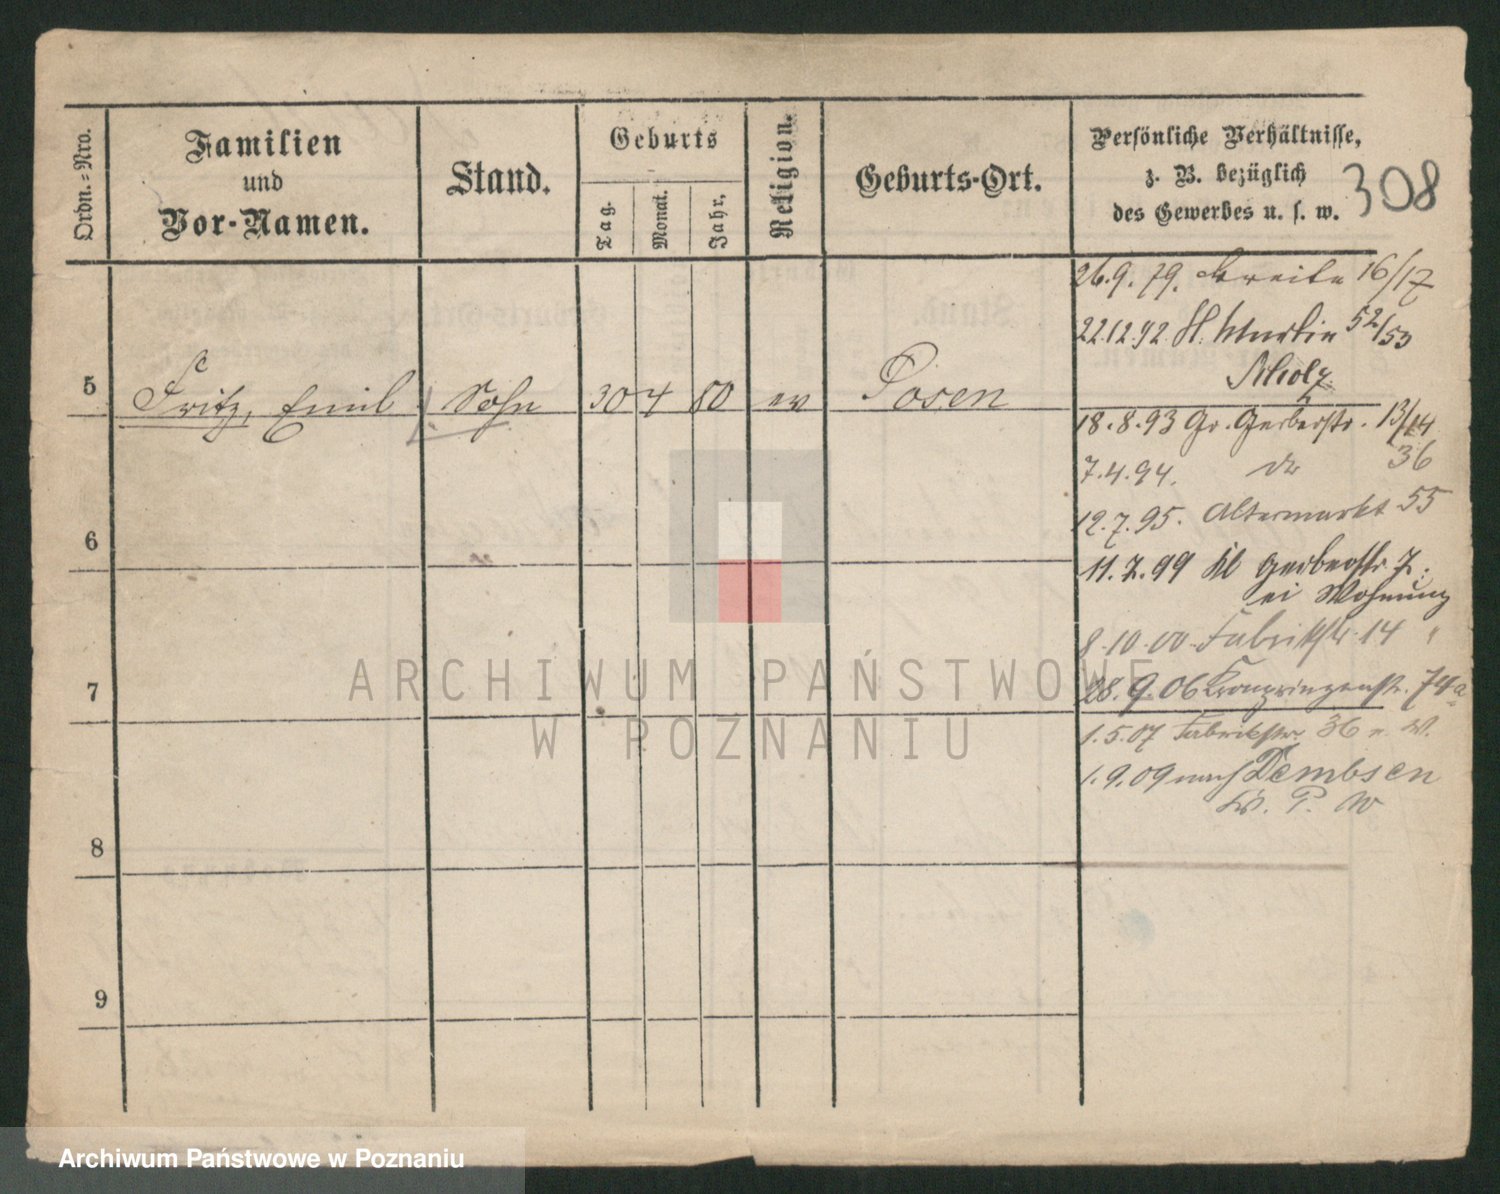 Ordn.-Nro.
Familien
und
Vor-Namen.
Stand.
Geburts
Tag.
Monat.
Jahr.
Religion.
Geburts-Ort.
Persönliche Verhältnisse,
z. B. bezüglich
des Gewerbes u. s. w.
308
26.9.79. Breite 16/17
22.12.92 St. Martin 52/53
Scholz
5 Fritz, Emil Sohn 30 4 80 ev Posen
18.8.93 Gr. Gerberstr. 13/14
7.4.94. do 36
12.7.95. Altermarkt 55
6
11.7.99 Kl Gerberstr. 7.
ei Wohnung
8.10.00 Fabrikstr. 14 "
7
28.9.06 Kronprinzenstr. 74a
1.5.07 Fabrikstr. 36 e. W.
1.9.09 nach Dembsen
Kr. P. W
8
9
ARCHIWUM PAŃSTWOWE
W POZNANIU
Archiwum Państwowe w Poznaniu